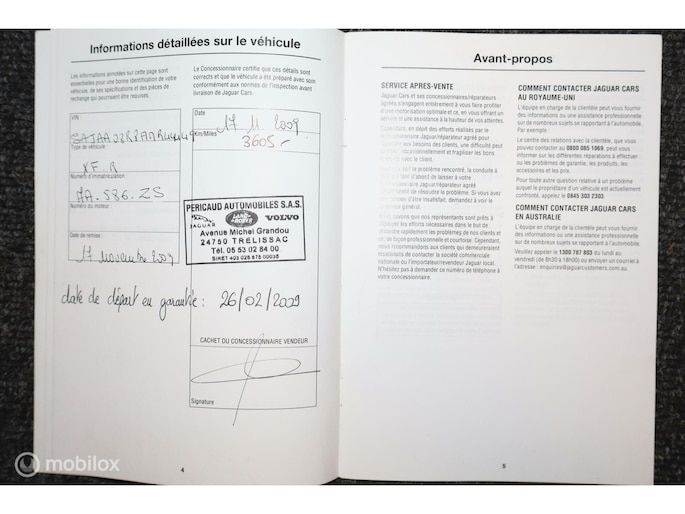 Informations détaillées sur le véhicule
Les informations annotées sur cette page sont
essentielles pour une bonne identification de votre
véhicule, de ses spécifications et des pièces de
rechange qui pourraient être requises.
VIN
Type de véhicule
XF R
Numéro d'immatriculation:
AA. 586. ZS
Numéro du moteur
Date de remise:
17 novembre 2009
Le Concessionnaire certifie que ces détails sont
corrects et que le véhicule a été préparé avec soin
conformément aux normes de l'inspection avant
livraison de Jaguar Cars.
Date
17 11 2009
Km/Miles
3605 -
PERICAUD AUTOMOBILES S.A.S.
JAGUAR LAND ROVER VOLVO
Avenue Michel Grandou
24750 TRÉLISSAC
Tél. 05 53 02 84 00
date de départ en garantie : 26/02/2009
CACHET DU CONCESSIONNAIRE VENDEUR
Signature
4
mobilox
Avant-propos
SERVICE APRES-VENTE
Jaguar Cars et ses concessionnaires/réparateurs
agréés s'engagent entièrement à vous faire profiter
d'une motorisation optimale et ce, en vous offrant un
service et une assistance à la hauteur de vos attentes.
Cependant, en dépit des efforts réalisés par le
Jaguar agréé pour
aux besoins des clients, une difficulté peut
et fragiliser les bons
avec le client.
le problème rencontré, la conduite à
d'abord de laisser à votre
Jaguar/réparateur agréé
de résoudre le problème. Si vous avez
d'être insatisfait, demandez à voir le
général.
que nos représentants sont prêts à
les efforts nécessaires dans le but de
rapidement les problèmes de nos clients et
ce, de façon professionnelle et courtoise. Cependant,
nous recommandons aux clients encore
insatisfaits de contacter la société commerciale
nationale ou l'importateur/revendeur Jaguar local.
N'hésitez pas à demander ce numéro de téléphone à
votre concessionnaire.
COMMENT CONTACTER JAGUAR CARS
AU ROYAUME-UNI
L'équipe en charge de la clientèle peut vous fournir
des informations ou une assistance professionnelle
sur de nombreux sujets se rapportant à l'automobile.
Par exemple :
Le centre des relations avec la clientèle, que vous
pouvez contacter au 0800 085 1069, peut vous
informer sur les différentes réparations à effectuer
ou les problèmes de garantie, les produits, les
accessoires et les prix.
Pour toute autre question relative à un problème
auquel le propriétaire d'un véhicule est actuellement
confronté, appelez le 0845 303 2303.
COMMENT CONTACTER JAGUAR CARS
EN AUSTRALIE
L'équipe en charge de la clientèle peut vous fournir
des informations ou une assistance professionnelle
sur de nombreux sujets se rapportant à l'automobile.
Veuillez appeler le 1300 787 803 du lundi au
vendredi (de 8h30 à 18h00) ou envoyer un courriel à
l'adresse : enquiries@jaguarcustomers.com.au.
5